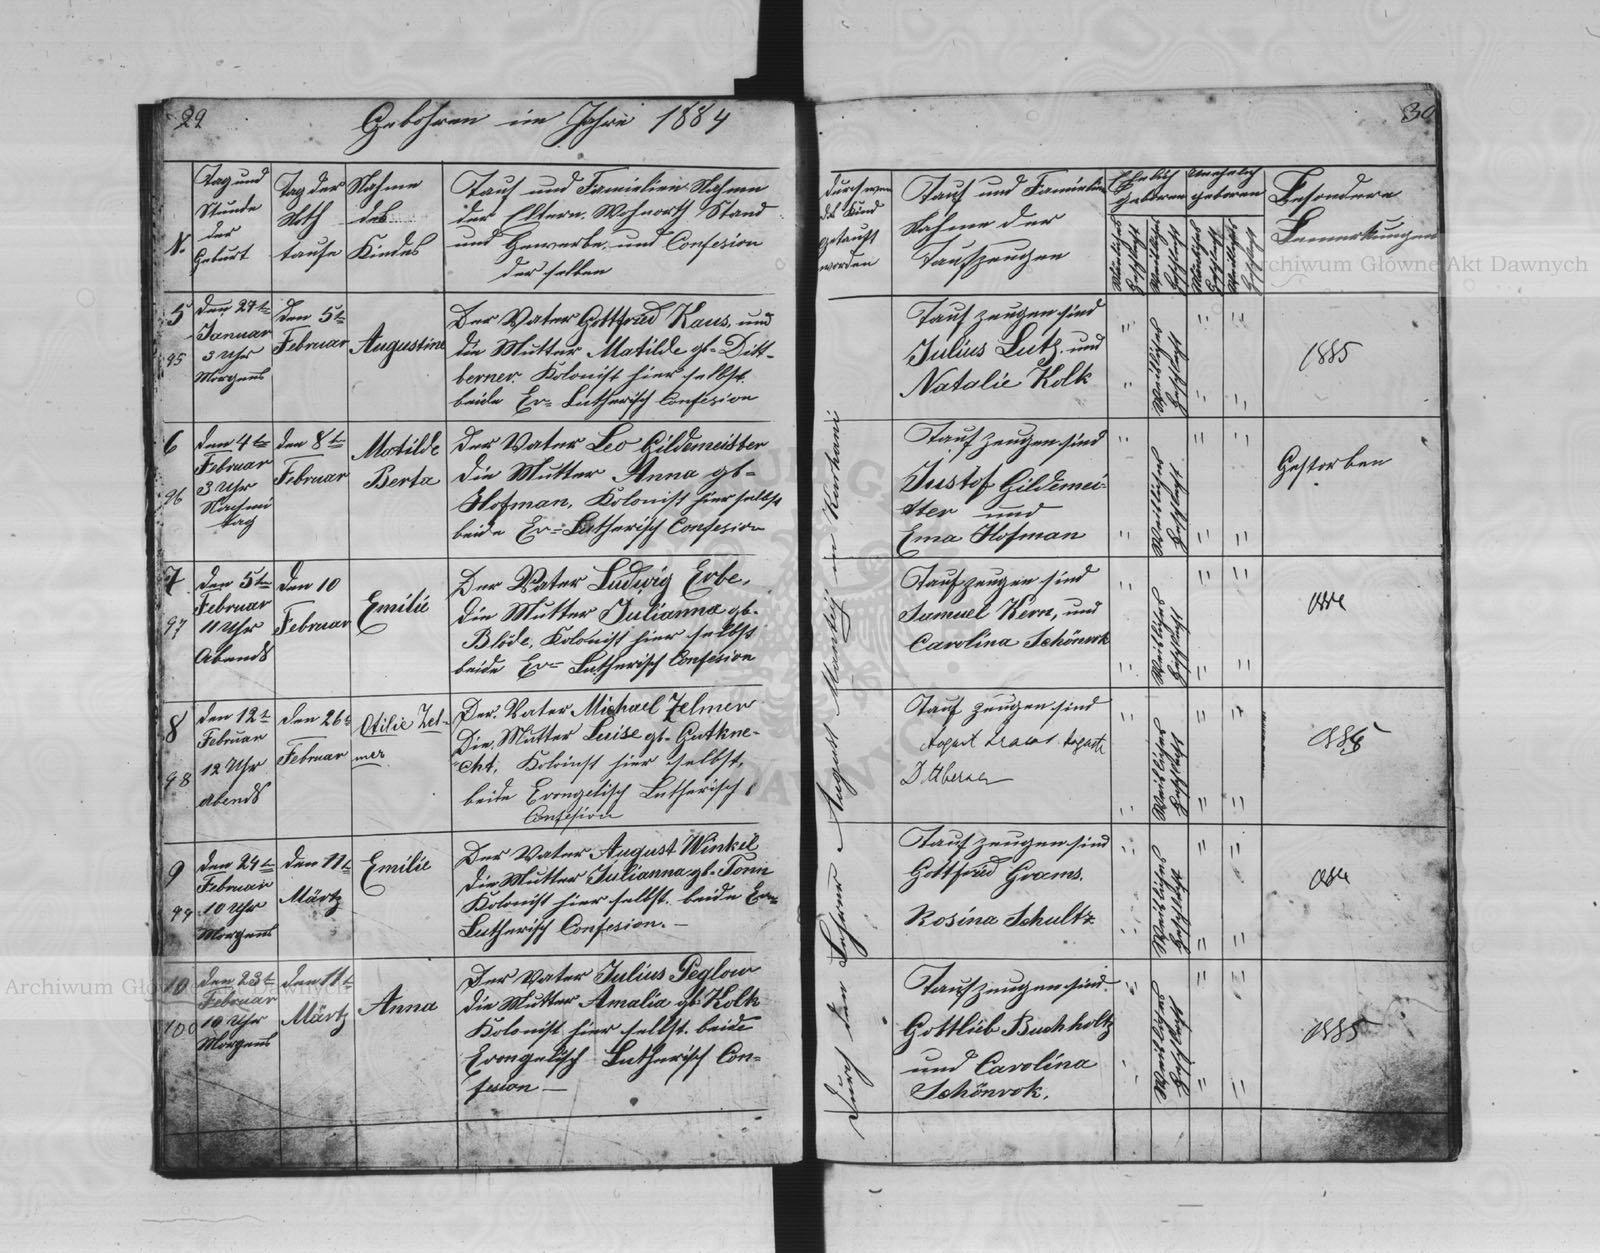 29
Gebohren im Jahre 1884
N.
Tag und
Stunde
der
Geburt
Tag der
Noth
taufe
Nahme
des
Kindes
Tauf und Familien Nahmen
der Eltern, Wohnorth Stand
und Gewerbe, und Confesion
derselben
5
95
den 27te
Januar
3 Uhr
Morgens
den 5te
Februar
Augustine
Der Vater Gottfried Kaus, und
die Mutter Matilde gb= Ditt-
berner. Kolonist hier selbst.
beide Ev= Lutherisch Confesion
6
96
den 4te
Februar
3 Uhr
Nachmi
tag
den 8te
Februar
Matilde
Berta
Der Vater Leo Gildemeister
die Mutter Anna gb=
Hofman, Kolonist hier selbst
beide Ev= Lutherisch Confesion
7
97
den 5te
Februar
11 Uhr
Abends
den 10
Februar
Emilie
Der Vater Ludwig Erbe,
die Mutter Julianna gb=
Blöde, Kolonist hier selbst
beide Ev= Lutherisch Confesion
8
98
den 12te
Februar
12 Uhr
Abends
den 26te
Februar
Otilie Zel-
mer
Der Vater Michael Zelmer
Die Mutter Luise gb= Gutkne-
cht, Kolonist hier selbst,
beide Evangelisch Lutherisch
Confesion
9
99
den 24te
Februar
10 Uhr
Morgens
den 11te
Märtz
Emilie
Der Vater August Winkel
die Mutter Julianna gb= Tonn
Kolonist hier selbst. beide Ev=
Lutherisch Confesion. —
10
100
den 23te
Februar
10 Uhr
Morgens
den 11te
Märtz
Anna
Der Vater Julius Peglow
die Mutter Amalia gb= Kolk
Kolonist hier selbst. beide
Evangelisch Lutherisch Con=
fesion —
30
durch wen
das Kind
getauft
worden
Tauf und Familien
Nahme der
Taufzeugen
Ehelich
geboren
Unehelich
geboren
Männliches
Geschlecht
Weibliches
Geschlecht
Männliches
Geschlecht
Weibliches
Geschlecht
Besondere
Bemerkungen
Durch den Lehrer August Manthey in
Taufzeugen sind
Julius Lutz. und
Natalie Kolk
Weibliches
Geschlecht
1885
Taufzeugen sind
Justof Gildemei-
ster und
Ema Hofman
Weibliches
Geschlecht
Gestorben
Taufzeugen sind
Samuel Kern, und
Carolina Schönrok
Weibliches
Geschlecht
Taufzeugen sind
Weibliches
Geschlecht
Taufzeugen sind
Gottfried Grams.
Rosina Schultz
Weibliches
Geschlecht
Taufzeugen sind.
Gottlieb Buchholtz
und Carolina
Schönrok.
Weibliches
Geschlecht
1885
Archiwum Główne Akt Dawnych
Archiwum Główne Akt Dawnych